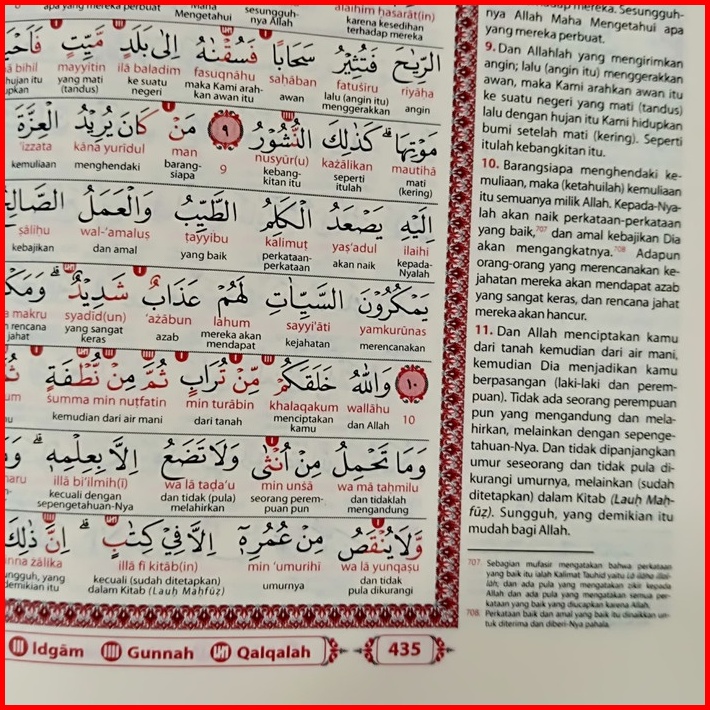 apa yang mereka perbuat Maha Mengetahui sesungguh-nya Allah 'alaihim ḥasarāt(in) karena kesedihan terhadap mereka
الرِّيٰحَ فَتُثِيْرُ سَحَابًا فَسُقْنٰهُ اِلٰى بَلَدٍ مَّيِّتٍ
riyāḥa fatuṡīru saḥāban fasuqnāhu ilā baladim mayyitin bihil
angin lalu (angin itu) menggerakkan awan maka Kami arah-kan awan itu ke suatu negeri yang mati (tandus) hujan itu
مَوْتِهَاۗ كَذٰلِكَ النُّشُوْرُ ٩ مَنْ كَانَ يُرِيْدُ الْعِزَّةَ
mautihā każālikan nusyūr(u) 9 man kāna yurīdul 'izzata
mati (kering) seperti itulah kebang-kitan itu barang-siapa menghendaki kemuliaan
اِلَيْهِ يَصْعَدُ الْكَلِمُ الطَّيِّبُ وَالْعَمَلُ
ilaihi yaṣ'adul kalimuṭ ṭayyibu wal-'amaluṣ ṣāliḥu
kepada-Nyalah akan naik perkataan-perkataan yang baik dan amal kebajikan
يَمْكُرُوْنَ السَّيِّاٰتِ لَهُمْ عَذَابٌ شَدِيْدٌۗ
yamkurūnas sayyi'āti lahum 'ażābun syadīd(un) makru
merencanakan kejahatan mereka akan mendapat azab yang sangat keras rencana jahat
١٠ وَاللّٰهُ خَلَقَكُمْ مِّنْ تُرَابٍ ثُمَّ مِنْ نُّطْفَةٍ
10 wallāhu khalaqakum min turābin ṡumma min nuṭfatin
dan Allah menciptakan kamu dari tanah kemudian dari air mani
وَمَا تَحْمِلُ مِنْ اُنْثٰى وَلَا تَضَعُ اِلَّا بِعِلْمِهٖۗ
wa mā taḥmilu min unṡā wa lā taḍa'u illā bi'ilmih(ī)
dan tidaklah mengandung seorang perem-puan pun dan tidak (pula) melahirkan kecuali dengan sepengetahuan-Nya
وَّلَا يُنْقَصُ مِنْ عُمُرِهٖٓ اِلَّا فِيْ كِتٰبٍۗ اِنَّ ذٰلِكَ
wa lā yunqaṣu min 'umurihī illā fī kitāb(in) inna żālika
dan tidak pula dikurangi umurnya kecuali (sudah ditetapkan) dalam Kitab (Lauḥ Maḥfūẓ)
Idgām Gunnah Qalqalah 435
terhadap mereka. Sesungguh-
nya Allah Maha Mengetahui apa
yang mereka perbuat.
9. Dan Allahlah yang mengirimkan
angin; lalu (angin itu) menggerakkan
awan, maka Kami arahkan awan itu
ke suatu negeri yang mati (tandus)
lalu dengan hujan itu Kami hidupkan
bumi setelah mati (kering). Seperti
itulah kebangkitan itu.
10. Barangsiapa menghendaki ke-
muliaan, maka (ketahuilah) kemuliaan
itu semuanya milik Allah. Kepada-Nya-
lah akan naik perkataan-perkataan
yang baik,707 dan amal kebajikan Dia
akan mengangkatnya.708 Adapun
orang-orang yang merencanakan ke-
jahatan mereka akan mendapat azab
yang sangat keras, dan rencana jahat
mereka akan hancur.
11. Dan Allah menciptakan kamu
dari tanah kemudian dari air mani,
kemudian Dia menjadikan kamu
berpasangan (laki-laki dan perem-
puan). Tidak ada seorang perempuan
pun yang mengandung dan mela-
hirkan, melainkan dengan sepenge-
tahuan-Nya. Dan tidak dipanjangkan
umur seseorang dan tidak pula di-
kurangi umurnya, melainkan (sudah
ditetapkan) dalam Kitab (Lauḥ Maḥ-
fūẓ). Sungguh, yang demikian itu
mudah bagi Allah.
707. Sebagian mufasir mengatakan bahwa perkataan
yang baik itu ialah Kalimat Tauhid yaitu Lā ilāha illal-
lāh; dan ada pula yang mengatakan zikir kepada
Allah dan ada pula yang mengatakan semua per-
kataan yang baik yang diucapkan karena Allah.
708. Perkataan baik dan amal yang baik itu dinaikkan un-
tuk diterima dan diberi-Nya pahala.